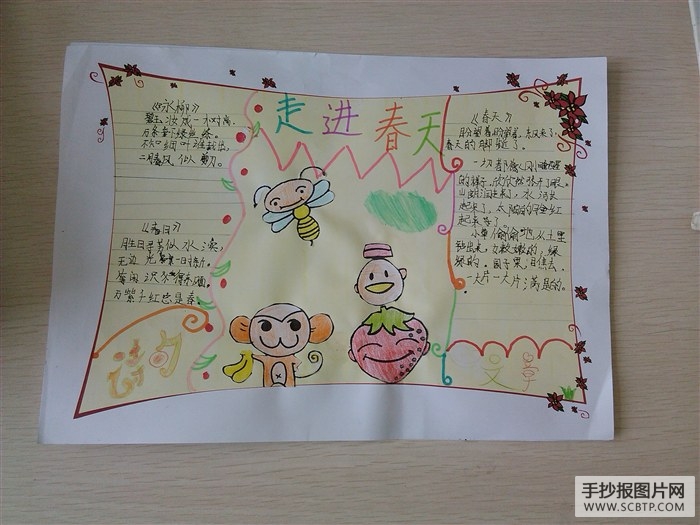 走进春天
《咏柳》
碧玉妆成一树高,
万条垂下绿丝绦。
不知细叶谁裁出,
二月春风似剪刀。
《春日》
胜日寻芳似水滨,
无边光景一时新。
万紫千红总是春。
诗
《春天》
盼望着,盼望着,东风来了,
春天的脚近了。
一切都像刚睡醒
的样子,欣欣然张开了眼。
山朗润起来了,水涨
起来了,太阳的脸红
起来了。
小草偷偷地从土里
钻出来,嫩嫩的,绿
绿的。园子里,
一大片一大片满是的。
文章
手抄报图片网
WWW.SCBTP.COM